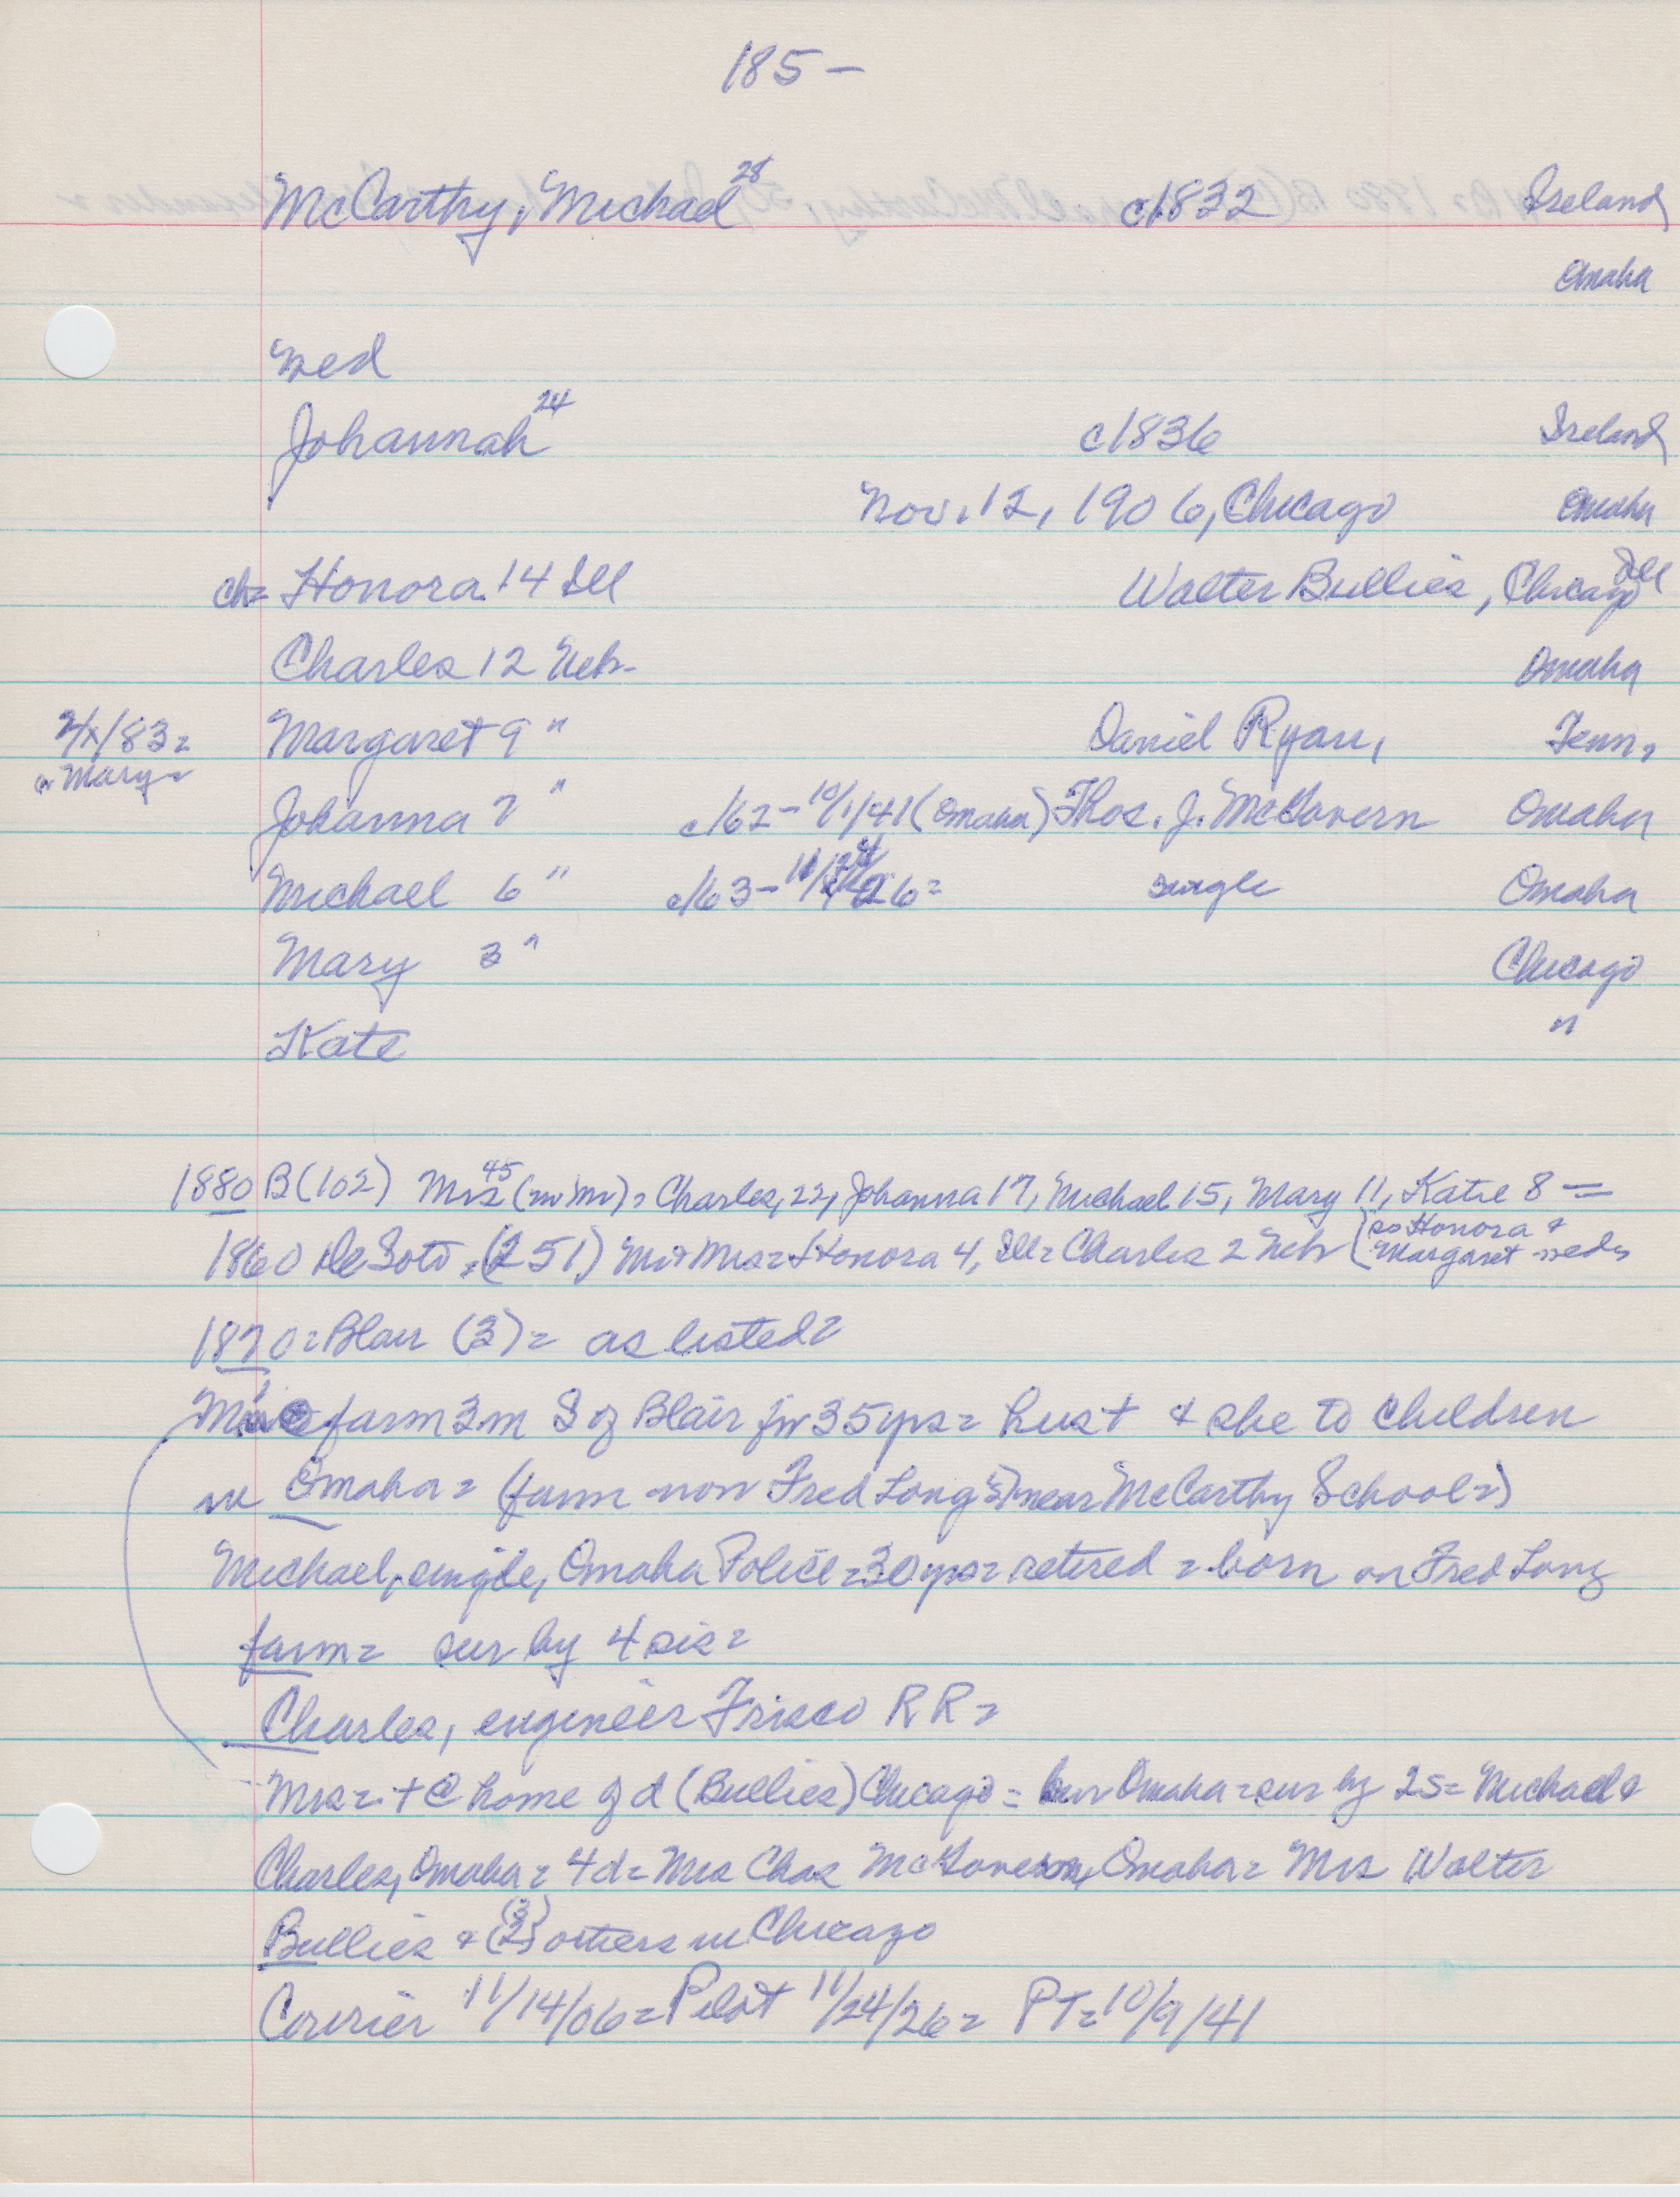 185-
McCarthy, Michael 28 c1832 Ireland
Omaha
wed
Johannah 24 c1836 Ireland
Nov. 12, 1906, Chicago Omaha
ch= Honora 14 Ill Walter Bullies, Chicago Ill
Charles 12 Neb- Omaha
Margaret 9 " Daniel Ryan, Tenn,
/83=
Mary=
Johanna 7 " c/62-10/1/41 (Omaha) Thos. J. McGovern Omaha
Michael 6 " c/63- 26= single Omaha
Mary 3 " Chicago
Kate "
1880 B(102) Mrs 45 = Charles, 22, Johanna 17, Michael 15, Mary 11, Katie 8 =
1860 DeSoto, (251) Mr & Mrs = Honora 4, Ill = Charles 2 Neb (so Honora &
Margaret wed,
1870 = Blair (3) = as listed =
farm 3m S of Blair for 35 yrs = hus + & she to children
in Omaha = (farm now Fred Long's) near McCarthy School =)
Michael, single, Omaha Police = 30 yrs = retired = born on Fred Long
farm = sur by 4 sis =
Charles, engineer Frisco RR =
Mrs = + @ home of d (Bullies) Chicago = bur Omaha = sur by 2s = Michael &
Charles, Omaha = 4d = Mrs Chas McGovern, Omaha = Mrs Walter
Bullies & (2) (3) others in Chicago
Courier 11/14/06 = Pilot 11/24/26 = PT = 10/9/41